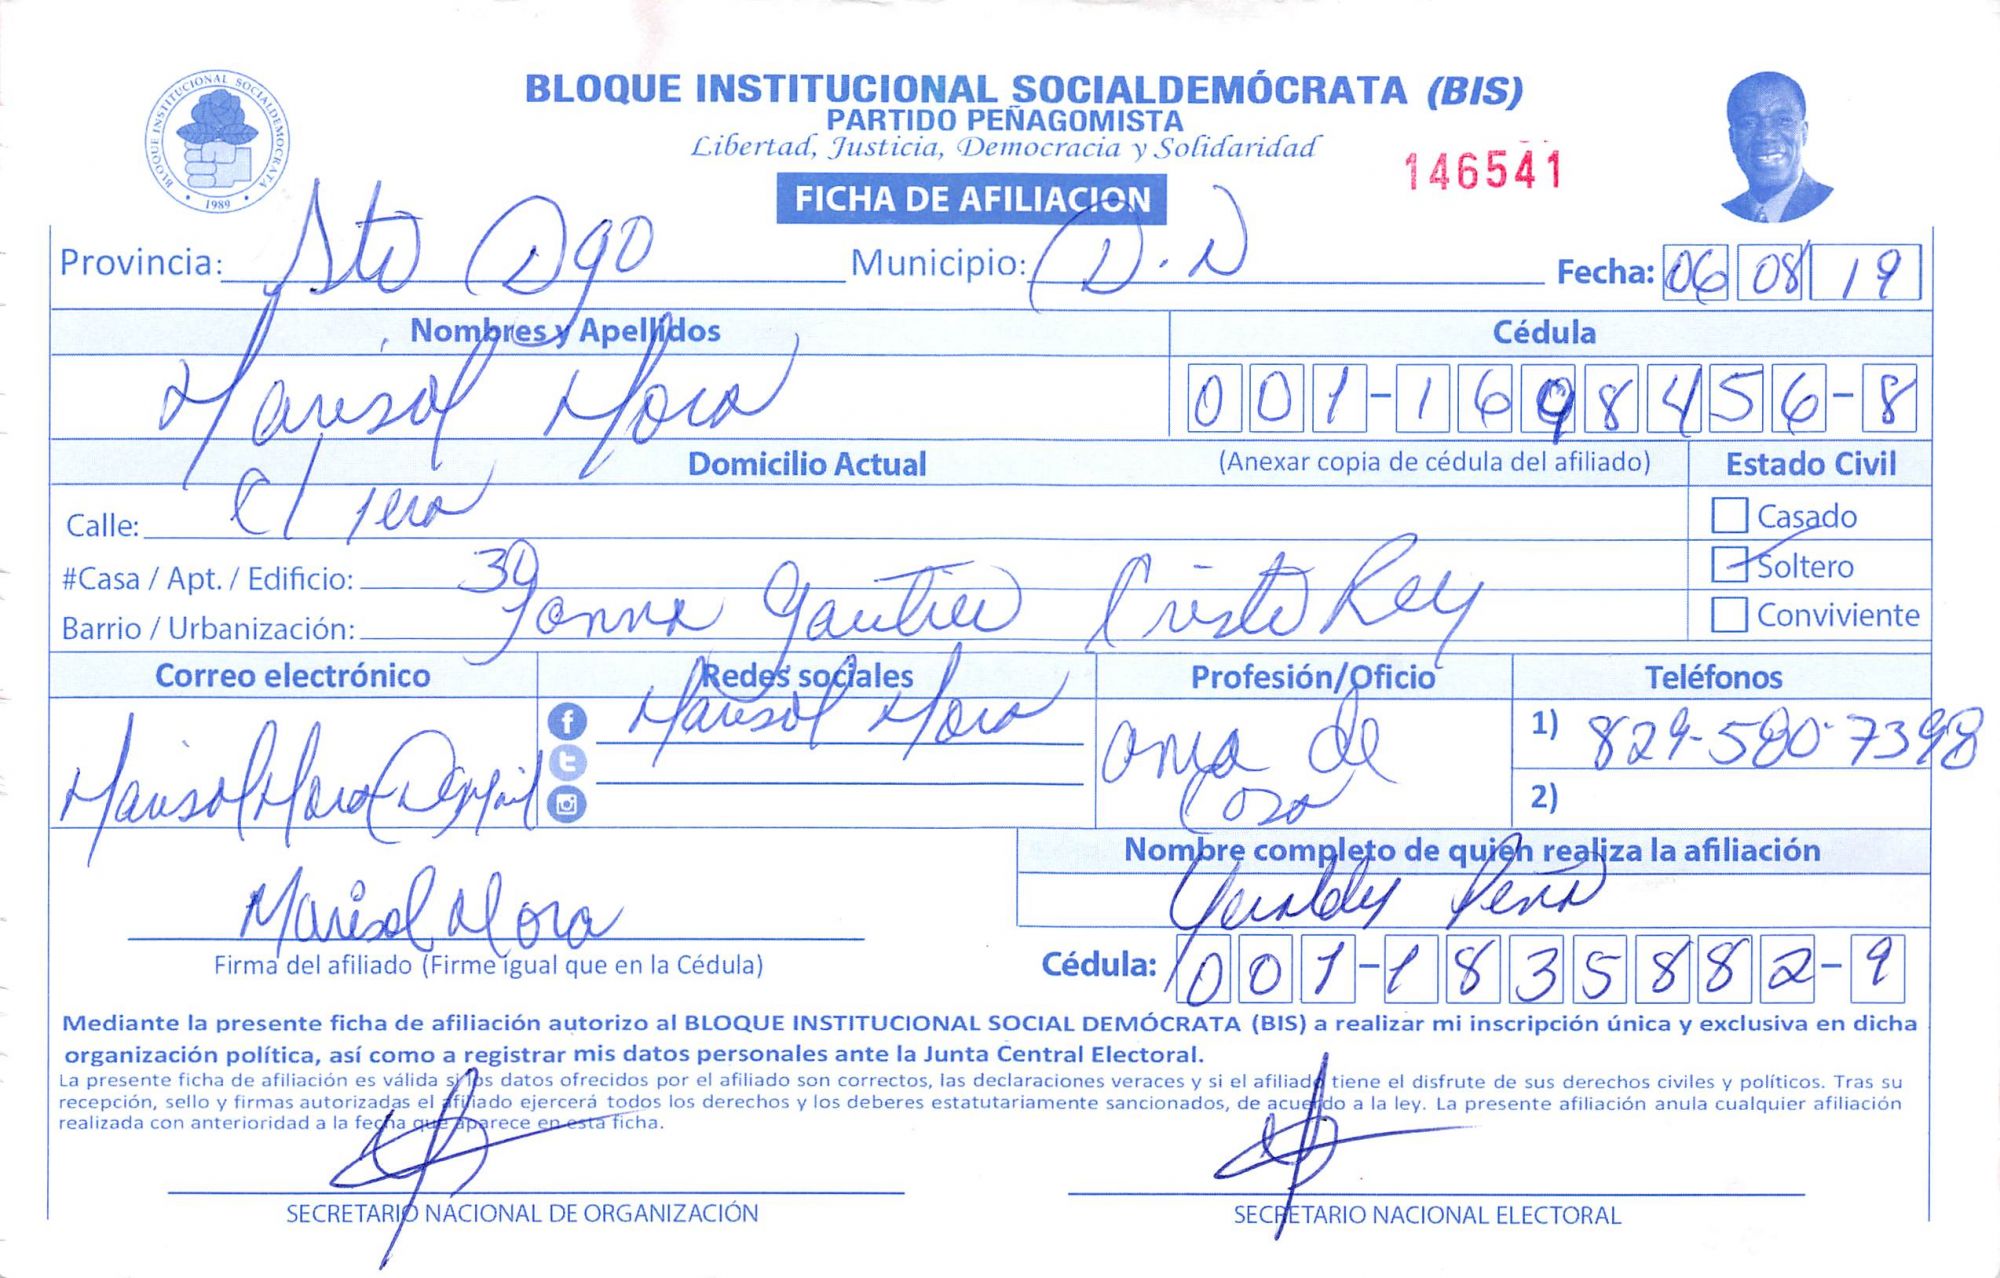 BLOQUE INSTITUCIONAL SOCIALDEMÓCRATA (BIS)
PARTIDO PEÑAGOMISTA
Libertad, Justicia, Democracia y Solidaridad
BLOQUE INSTITUCIONAL SOCIALDEMOCRATA
1989
146541
FICHA DE AFILIACION
Provincia: Sto Dgo Municipio: D.N Fecha: 06 08 19
Nombres y Apellidos Cédula
Marisol Mora 001-1698456-8
Domicilio Actual (Anexar copia de cédula del afiliado) Estado Civil
Calle: C/ 1era Casado
#Casa / Apt. / Edificio: 39 Soltero
Barrio / Urbanización: Gautier Cristo Rey Conviviente
Correo electrónico Redes sociales Profesión/Oficio Teléfonos
Marisol Mora 1) 829-580-7398
Marisol Mora ama de casa 2)
Nombre completo de quien realiza la afiliación
Peña
Marisol Mora
Firma del afiliado (Firme igual que en la Cédula) Cédula: 001-1835882-9
Mediante la presente ficha de afiliación autorizo al BLOQUE INSTITUCIONAL SOCIAL DEMÓCRATA (BIS) a realizar mi inscripción única y exclusiva en dicha
organización política, así como a registrar mis datos personales ante la Junta Central Electoral.
La presente ficha de afiliación es válida si los datos ofrecidos por el afiliado son correctos, las declaraciones veraces y si el afiliado tiene el disfrute de sus derechos civiles y políticos. Tras su
recepción, sello y firmas autorizadas el afiliado ejercerá todos los derechos y los deberes estatutariamente sancionados, de acuerdo a la ley. La presente afiliación anula cualquier afiliación
realizada con anterioridad a la fecha que aparece en esta ficha.
SECRETARIO NACIONAL DE ORGANIZACIÓN SECRETARIO NACIONAL ELECTORAL